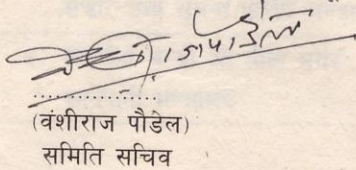 ..................
(वंशीराज पौडेल)
समिति सचिव